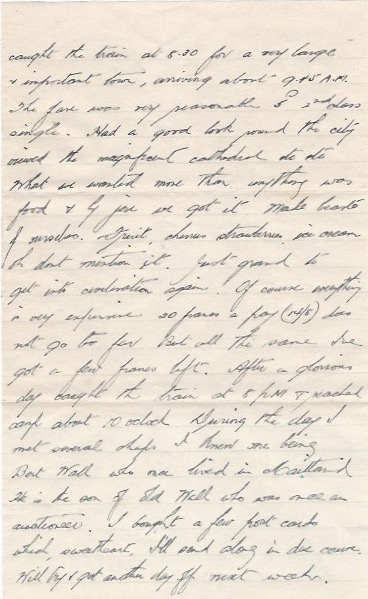 caught the train at 5.30 for a very large
& important town, arriving about 9.45 A.M.
The fare was very reasonable 2nd class
single. Had a good look round the city
viewed the magnificent cathedral etc etc
What we wanted more than anything was
food & By jove we got it Make beasts
of ourselves. Fruit, cherries strawberries, ice cream
oh dont mention it. Just grand to
get into civilisation again. Of course everything
is very expensive 20 francs a pay (14/8) does
not go too far But all the same I've
got a few francs left. After a glorious
day caught the train at 8 P.M & reached
camp about 10 oclock During the day I
met several chaps I knew one being
Bert Wall who once lived in Maitland
He is the son of Old Wall who was once an
auctioneer. I bought a few post cards
which, sweetheart, I'll send along in due course.
Will try & get another day off next week.